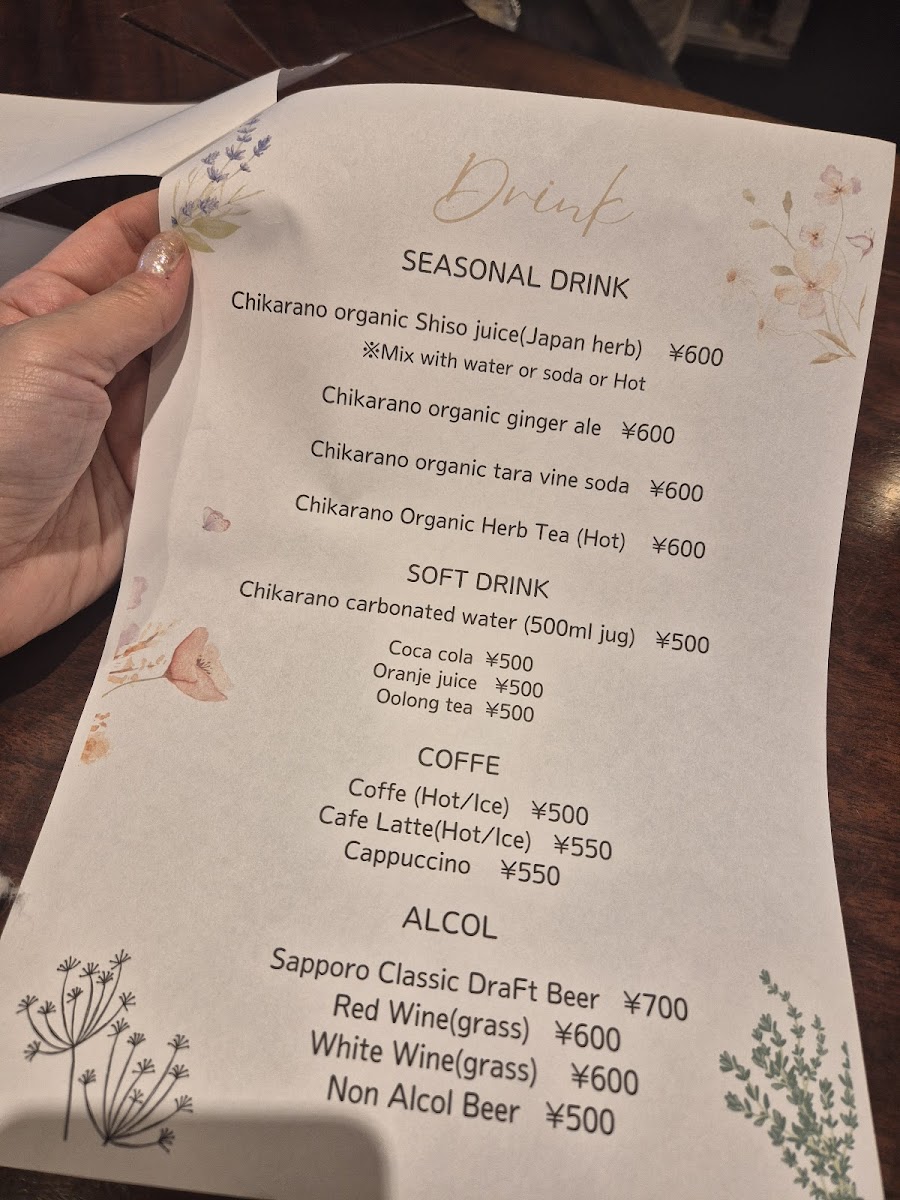 Drink
SEASONAL DRINK
Chikarano organic Shiso juice(Japan herb) ¥600
※Mix with water or soda or Hot
Chikarano organic ginger ale ¥600
Chikarano organic tara vine soda ¥600
Chikarano Organic Herb Tea (Hot) ¥600
SOFT DRINK
Chikarano carbonated water (500ml jug) ¥500
Coca cola ¥500
Oranje juice ¥500
Oolong tea ¥500
COFFE
Coffe (Hot/Ice) ¥500
Cafe Latte(Hot/Ice) ¥550
Cappuccino ¥550
ALCOL
Sapporo Classic DraFt Beer ¥700
Red Wine(grass) ¥600
White Wine(grass) ¥600
Non Alcol Beer ¥500